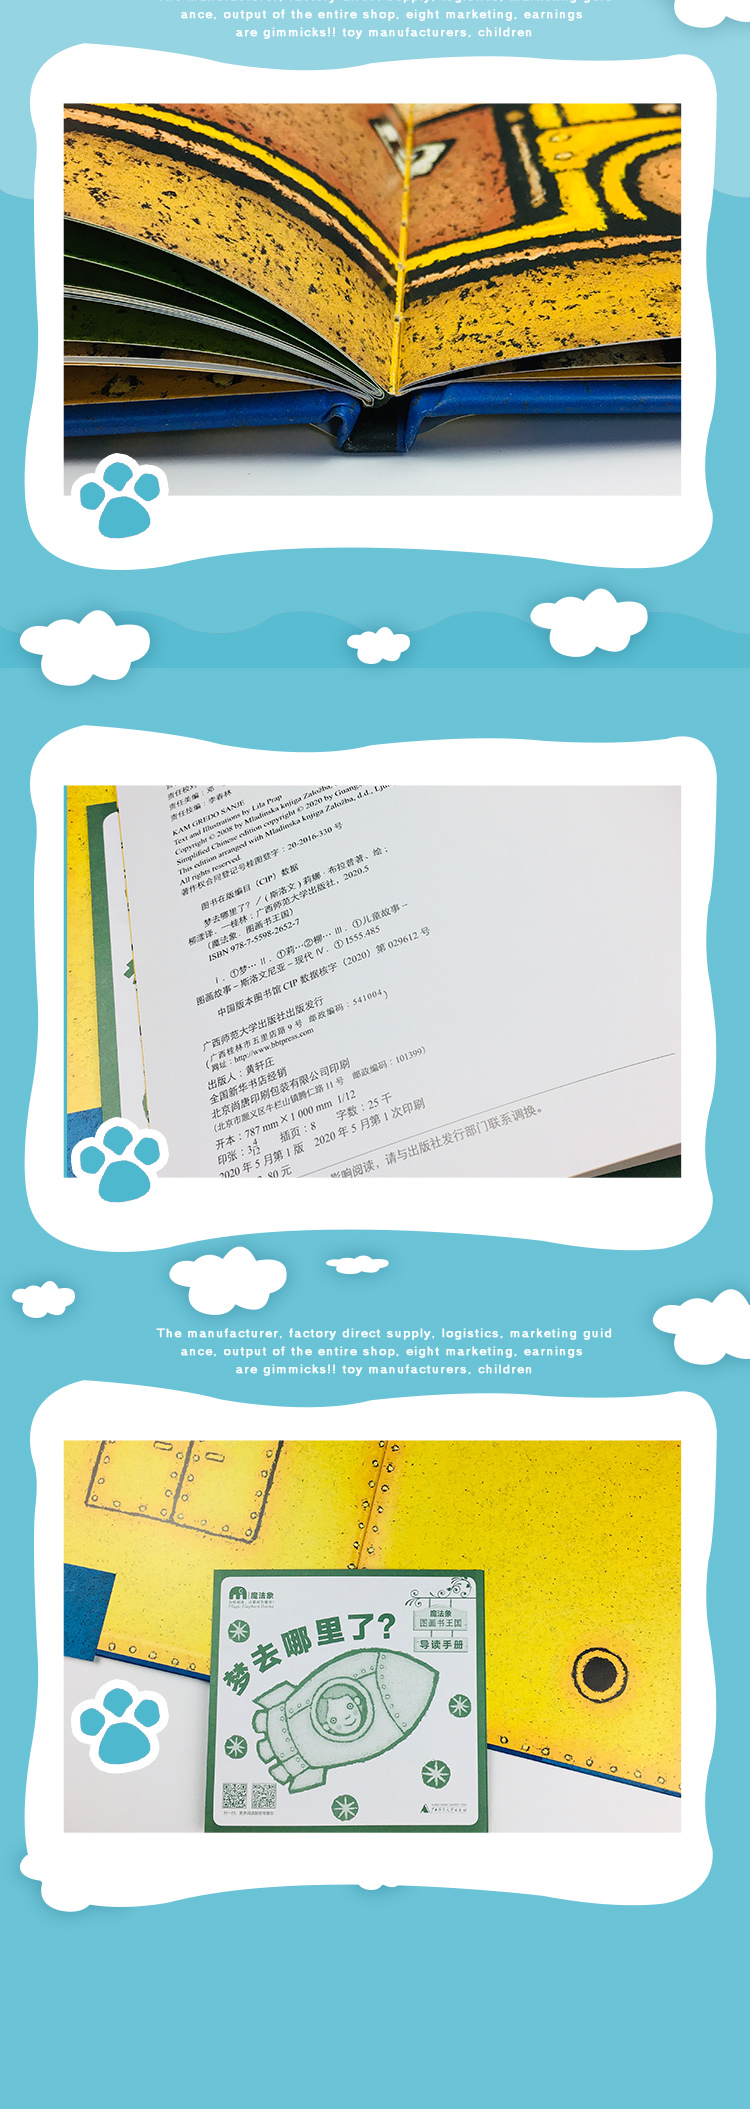 ance, output of the entire shop, eight marketing, earnings
are gimmicks!! toy manufacturers, children
责任美编：邓
责任技编：李春林
KAM GREDO SANJE
Text and Illustrations by Lila Prap
Copyright © 2008 by Mladinska knjiga Založba,
Simplified Chinese edition copyright © 2020 by Guang
This edition arranged with Mladinska knjiga Založba, d.d., Lju
All rights reserved.
著作权合同登记号桂图登字：20-2016-330 号
图书在版编目（CIP）数据
梦去哪里了？/（斯洛文）莉娜·布拉普著、绘；
柳漾译. —桂林：广西师范大学出版社，2020.5
（魔法象. 图画书王国）
ISBN 978-7-5598-2652-7
Ⅰ. ①梦… Ⅱ. ①莉…②柳… Ⅲ. ①儿童故事－
图画故事－斯洛文尼亚－现代 Ⅳ. ① I555.485
中国版本图书馆 CIP 数据核字（2020）第 029612 号
广西师范大学出版社出版发行
（广西桂林市五里店路 9 号 邮政编码：541004）
网址：http://www.bbtpress.com
出版人：黄轩庄
全国新华书店经销
北京尚唐印刷包装有限公司印刷
（北京市顺义区牛栏山镇腾仁路 11 号 邮政编码：101399）
开本：787 mm × 1 000 mm 1/12
印张：3 4/12 插页：8 字数：25 千
2020 年 5 月第 1 版 2020 年 5 月第 1 次印刷
.80 元
影响阅读，请与出版社发行部门联系调换。
The manufacturer, factory direct supply, logistics, marketing guid
ance, output of the entire shop, eight marketing, earnings
are gimmicks!! toy manufacturers, children
魔法象
魔法象
图画书王国
导读手册
梦去哪里了?